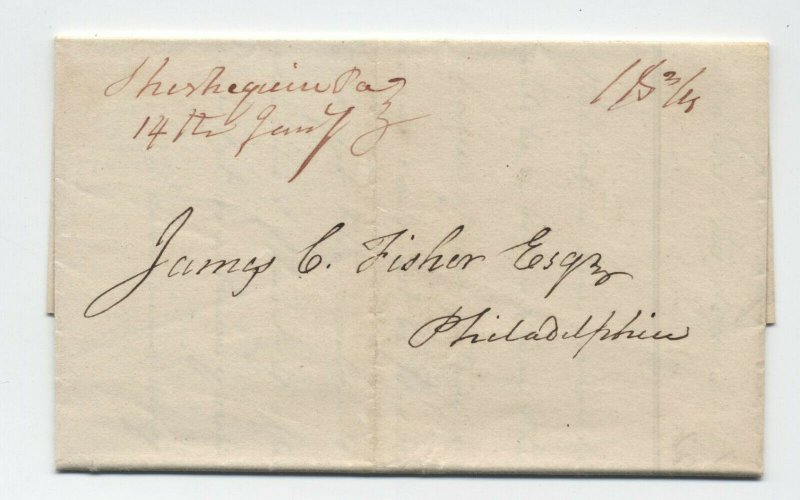 Sheshequin Pa
14th Jany
18 3/4
James C. Fisher Esqr
Philadelphia